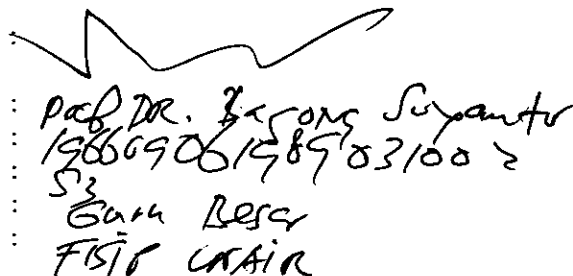 : 
: Prof DR. Bagong Suyanto
: 196609061989031002
: S3
: Guru Besar
: FISIP UNAIR